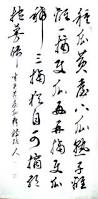 種瓜黃臺下瓜熟子離
離一摘使瓜好再摘使瓜
稀三摘猶自可摘絕
抱蔓歸